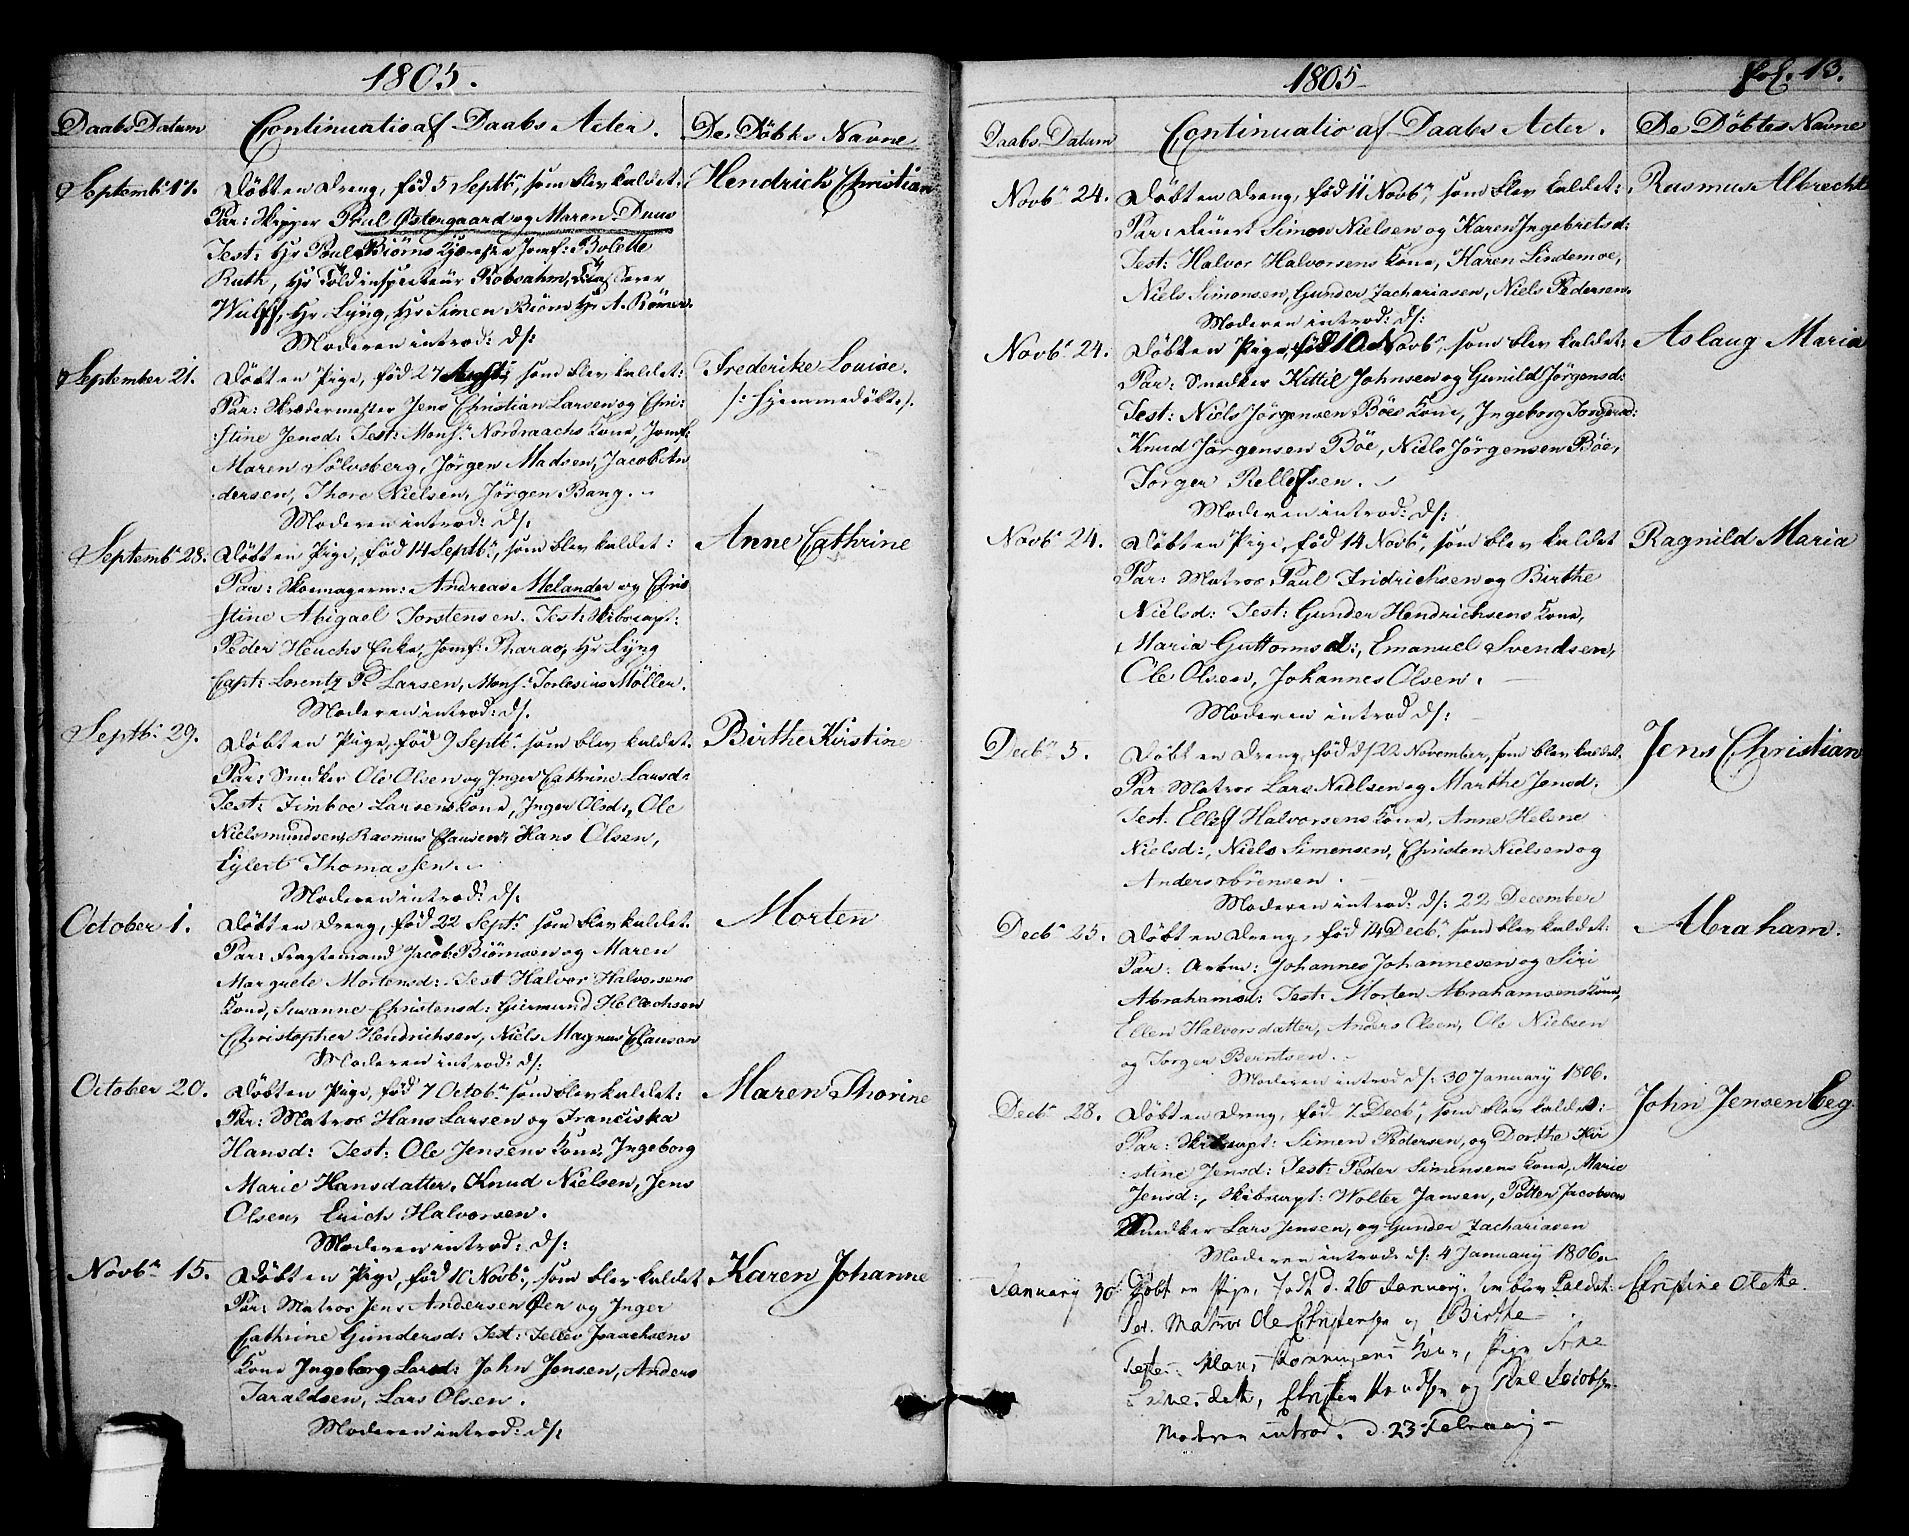 1805.
Daabs Datum
Continuatio af Daabs Acter.
De Döbtes Navne
Septembr 17.
Döbt en Dreng, föd 5 Septbr, som blev kaldet:
Hendrich Christian
Par: Skipper Poul Østergaard og Maren Duus
Test: Hr Poul Biörns Kjæreste Jomf: Bolette
Ruth, Hr Toldinspecteur Robsahm,
Wulff, Hr Lyng, Hr Simen Biörn Hr A. Römer.
Moderen introd: ds:
September 21.
Döbt en Pige, föd 27 August, som blev kaldet:
Frederike Louise.
/: Hjemmedöbt :/
Par: Skrædermester Jens Christian Larsen og Chri:
:stine Jensd: Test: Monsr Nordraachs Kone, Jomf:
Maren Sölvsberg, Jörgen Madsen, Jacob An
dersen, Thore Nielsen, Jörgen Bang.
Moderen introd: ds:
Septembr 28.
Döbt en Pige, föd 14 Septbr, som blev kaldet:
Anne Cathrine
Par: Skoemagerm: Andreas Melander og Chris
stine Abigael Torstensen. Test: Skibscapt:
Peder Heuchs Enke, Jomf: Pharao, Hr Lyng
Capt: Lorentz P Larsen, Monsr Torlesius Möller.
Moderen introd: ds.
Septbr 29.
Döbt en Pige, föd 9 Septbr som blev kaldet.
Birthe Kirstine
Par: Snedker Ole Olsen og Inger Cathrine Larsd:
Test: Timboe Larsens Kone, Inger Olsd:, Ole
Nielsmundsen, Rasmus Clausen, Hans Olsen,
Eylert Thomassen.
Moderen introd: ds:
October 1.
Döbt en Dreng, föd 22 Septr som blev kaldet.
Morten
Par: Fragtemand Jacob Biörnsen og Maren
Margrete Mortensd: Test Halvor Halvorsens
Kone, Susanne Christensd: Giermund Hellechsen
Christopher Hendrichsen, Niels Magnus Clausen
Moderen introd: ds:
October 20.
Döbt en Pige, föd 7 Octobr som blev kaldet:
Maren Thorine
Par: Matros Hans Larsen og Franciska
Hansd: Test: Ole Jensens Kone, Ingeborg
Marie Hansdatter, Knud Nielsen, Jens
Olsen, Erich Halvorsen.
Moderen introd: ds:
Novbr 15.
Döbt en Pige, föd 10 Novbr, som blev kaldet
Karen Johanne
Par: Matros Jens Andersen Øen og Inger
Cathrine Gundersd: Test: Tellev Isaachsens
Kone Ingeborg Larsd: John Jensen, Anders
Taraldsen, Lars Olsen.
Moderen introd: ds:
1805
Fol. 13.
Daabs Datum
Continuatio af Daabs Acter.
De Döbtes Navne
Novbr 24.
Döbt en Dreng, föd 11 Novbr, som blev kaldet:
Rasmus Albrecht
Par: Simon Nielsen og Karen Ingebretsd:
Test: Halvor Halvorsens Kone, Karen Lindemoe,
Niels Simonsen, Gunder Zachariasen, Niels Pedersen.
Moderen introd: ds:
Novbr 24.
Döbt en Pige, föd 10 Novbr, som blev kaldet:
Aslaug Maria
Par: Snedker Kittil Johnsen og Gunild Jörgensd:
Test: Niels Jörgensen Böes Kone, Ingeborg Torgersd:
Knud Jörgensen Böe, Niels Jörgensen Böe,
Torger Rellefsen.
Moderen introd: ds:
Novbr 24.
Döbt en Pige, föd 14 Novbr, som blev kaldet
Ragnild Maria
Par: Matros Paul Fridrichsen og Birthe
Nielsd: Test: Gunder Hendrichsens Kone,
Maria Guttormsd:, Emanuel Svendsen,
Ole Olsen, Johannes Olsen.
Moderen introd ds:
Decbr 3.
Döbt en Dreng, föd ds 22 November, som blev kaldet.
Jens Christian
Par: Matros Lars Nielsen og Marthe Jensd.
Test. Ellef Halvorsens Kone, Anne Helene
Nielsd:, Niels Simensen, Christen Nielsen og
Anders Sörensen.
Moderen introd: ds: 22 December
Decbr 25.
Döbt en Dreng, föd 14 Decbr, som blev kaldet:
Abraham.
Par: Arbm: Johannes Johannesen og Siri
Abrahamsd: Test: Morten Abrahamsens Kone,
Ellen Halvorsdatter, Anders Olsen, Ole Nielsen
og Torger Berntsen.
Moderen introd ds: 30 January 1806.
Decbr 28.
Döbt en Dreng, föd 7 Decbr, som blev kaldet:
John Jensenbeg
Par: Skibscapt: Simen Pedersen, og Dorthe Kir
:stine Jensd: Test: Peder Simensens Kone, Marie
Jensd:, Skibscapt: Wolter Jansen, Petter Jacobsen
Snedker Lars Jensen, og Gunder Zachariasen
Moderen introd: ds: 4 January 1806.
January 30.
Döbt en Pige, Födt d. 26 January. som blev kaldet:
Christine Olette.
Par. Matros Ole Christensen og Birthe
Teste: Kone, Pige Anne
datter, Christen Knudsen og Poul Jacobsen
Moderen introd. d. 23 February